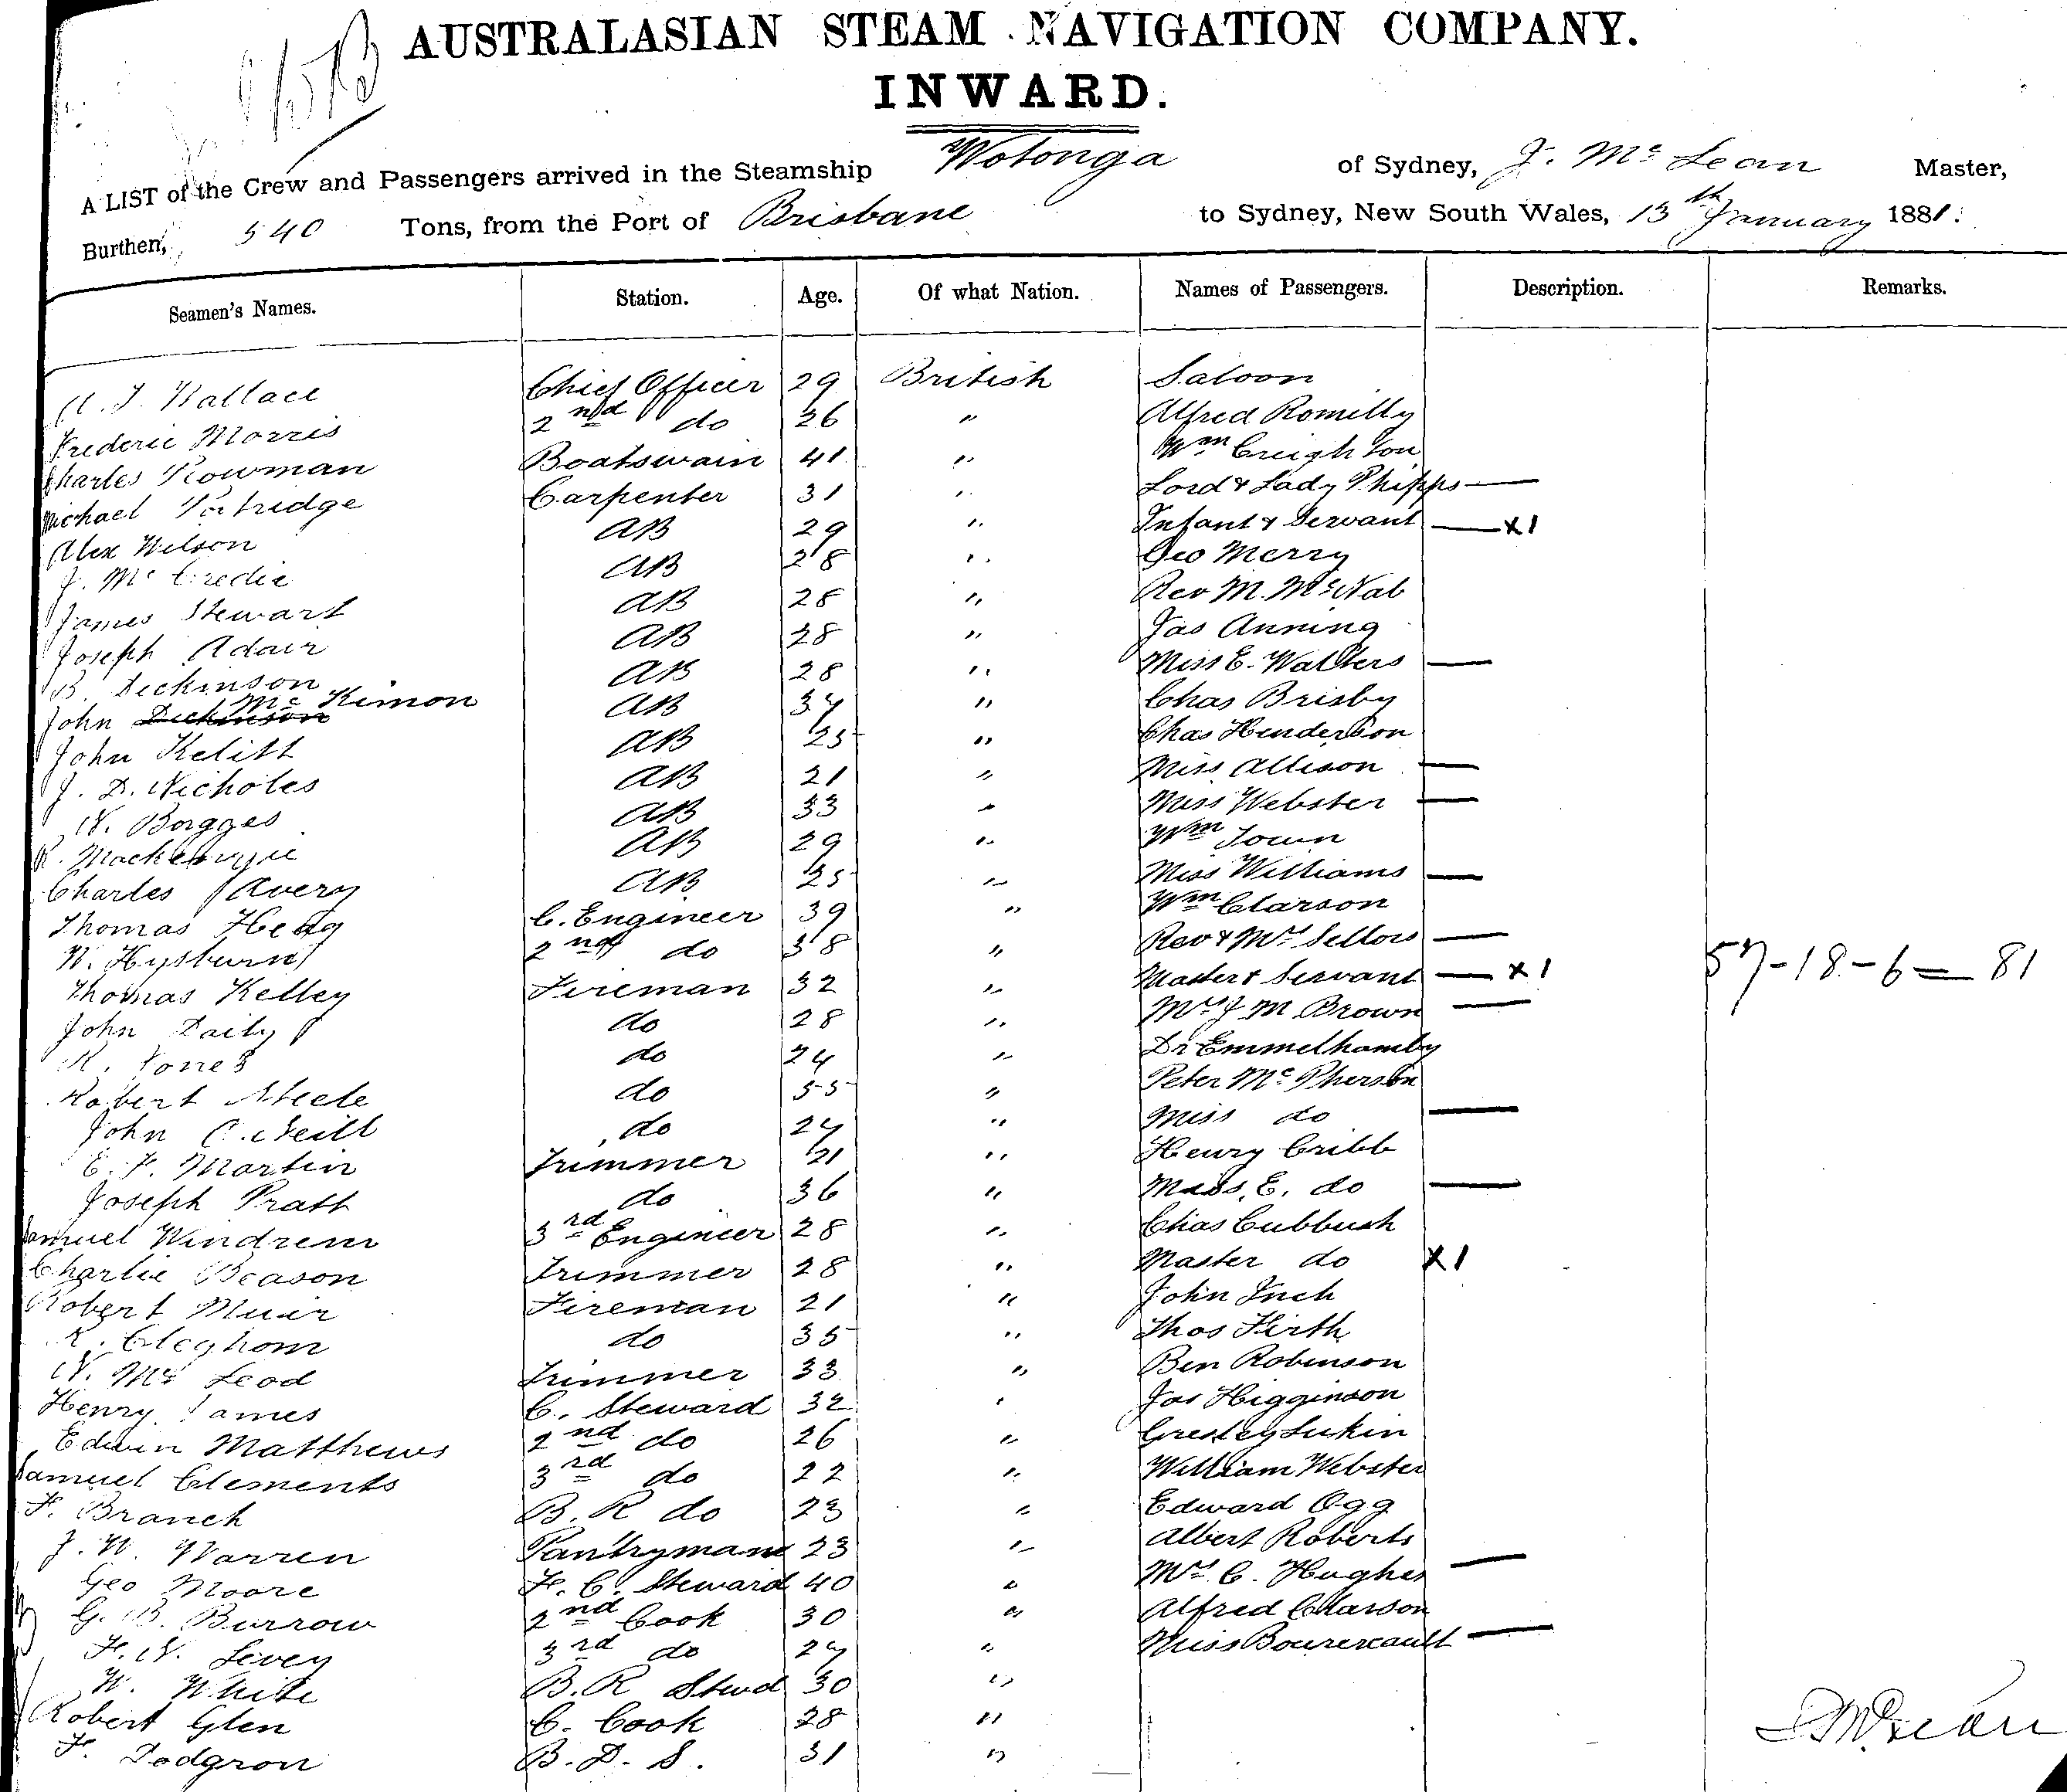 AUSTRALASIAN STEAM NAVIGATION COMPANY.
INWARD.
A LIST of the Crew and Passengers arrived in the Steamship Wotonga of Sydney, J. Mc Lean Master,
Burthen, 540 Tons, from the Port of Brisbane to Sydney, New South Wales, 13th January 1881.
Seamen's Names. Station. Age. Of what Nation. Names of Passengers. Description. Remarks.
J. Wallace Chief Officer 29 British Saloon
Frederic Morris 2nd do 26 " Alfred Romilly
Charles Rowman Boatswain 41 " Wm Creighton
Michael Patridge Carpenter 31 " Lord & Lady Phipps —
Alex Wilson AB 29 " Infant & Servant — x1
J. Mc Credie AB 28 " Geo Merry
James Stewart AB 28 " Rev M. McNab
Joseph Adair AB 28 " Jas Anning
B. Dickinson AB 28 " Miss E. Walters —
John Dickinson Mc Kimon AB 34 " Chas Brisby
John Kelitt AB 25 " Chas Henderson
J. D. Nicholes AB 21 " Miss Allison —
W. Borgges AB 33 " Miss Webster —
Mackenzie AB 29 " Wm Town
Charles Avery AB 25 " Miss Williams —
Thomas C. Engineer 39 " Wm Clarson
W. 2nd do 38 " Rev & Mrs Sellors —
Thomas Kelley Fireman 32 " Master & Servant — x1 57-18-6 = 81
John Daily do 28 " Mrs J M Brown —
Jones do 24 " Dr
Robert Steele do 55 " Peter Mc Pherson
John O'Neill do 24 " Miss do —
E. F. Martin Trimmer 21 " Henry Cribb
Joseph Pratt do 36 " Miss E. do —
Samuel Windrem 3rd Engineer 28 " Chas Cubbush
Charlie Beason Trimmer 28 " Master do x1
Robert Muir Fireman 21 " John Inch
R. Cleghorn do 35 " Thos Firth
N. Mc Leod Trimmer 33 " Ben Robinson
Henry James C. Steward 32 " Jas Higginson
Edwin Matthews 2nd do 26 " Gresley Lukin
Samuel Clements 3rd do 22 " William Webster
F. Branch B. R do 23 " Edward Ogg
J. W. Warren Pantryman 23 " Albert Roberts
Geo Moore F. C. Steward 40 " Mrs C. Hughes —
G. B. Burrow 2nd Cook 30 " Alfred Clarson
F. W. Levey 3rd do 24 " Miss —
W. White B. R Stwd 30 "
Robert Glen C. Cook 28 "
F. Dodgron B. D. S. 31 "
J McLean